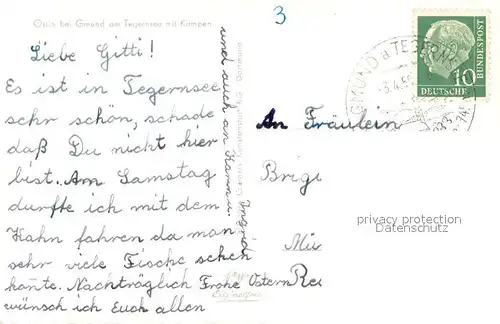 Ostin bei Gmund am Tegernsee mit Kampen
3
Liebe Gitti!
Es ist in Tegernsee
sehr schön, schade
daß Du nicht hier
bist. Am Samstag
durfte ich mit dem
Kahn fahren da man
sehr viele Fische sehen
konnte. Nachträglich Frohe Ostern
wünsch ich Euch allen
und auch an
Ingrid
An Fräulein
Brigi
privacy protection
Datenschutz
DEUTSCHE
BUNDESPOST
10
GMUND a TEGERNSEE